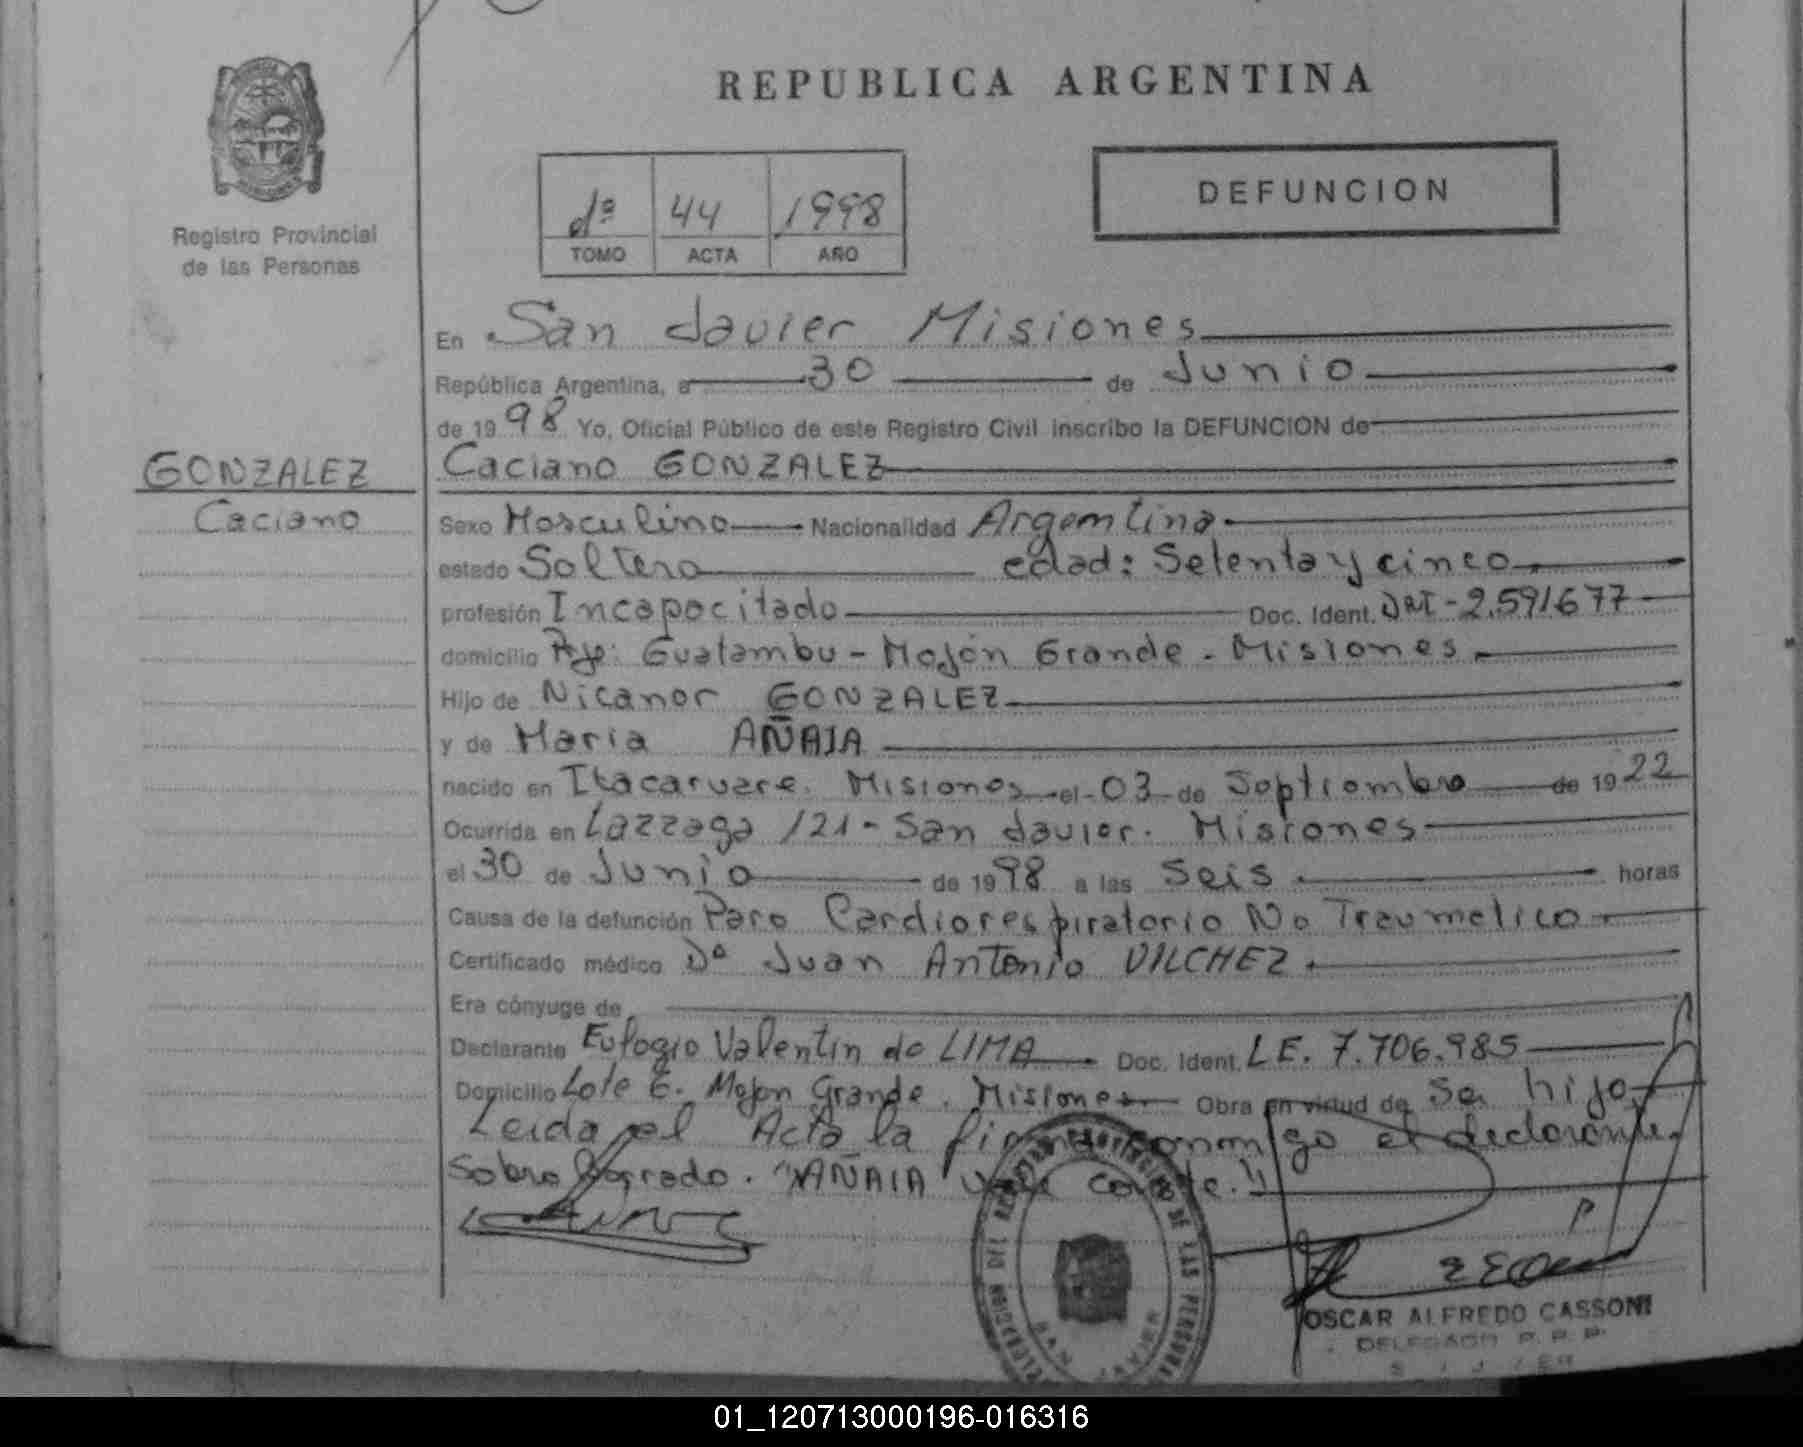 REPUBLICA ARGENTINA
Registro Provincial
de las Personas
dº 44 1998
TOMO ACTA AÑO
DEFUNCION
En San Javier Misiones
República Argentina, a 30 de Junio
de 1998 Yo, Oficial Público de este Registro Civil inscribo la DEFUNCION de
GONZALEZ
Caciano
Caciano GONZALEZ
Sexo Masculino Nacionalidad Argentina
estado Soltero edad: Setenta y cinco
profesión Incapacitado Doc. Ident. DNI-2.591677
domicilio Pje: Guatambu - Mojón Grande - Misiones
Hijo de Nicanor GONZALEZ
y de Maria AÑAIA
nacido en Itacaruare. Misiones el 03 de Septiembre de 1922
Ocurrida en Lazzaga 121 - San Javier. Misiones
el 30 de Junio de 1998 a las Seis horas
Causa de la defunción Paro Cardiorespiratorio No Traumatico
Certificado médico Dº Juan Antonio VILCHEZ
Era cónyuge de
Declarante Eulogio Valentin do LIMA Doc. Ident. LE. 7.706.985
Domicilio Lote 6. Mojon Grande. Misiones Obra en virtud de Ser hijo
Leida el Acta la firma conmigo el declarante.
Sobre Borrado. "AÑAIA" Vale conste."
OSCAR ALFREDO CASSONI
DELEGADO R. P. P.
01_120713000196-016316